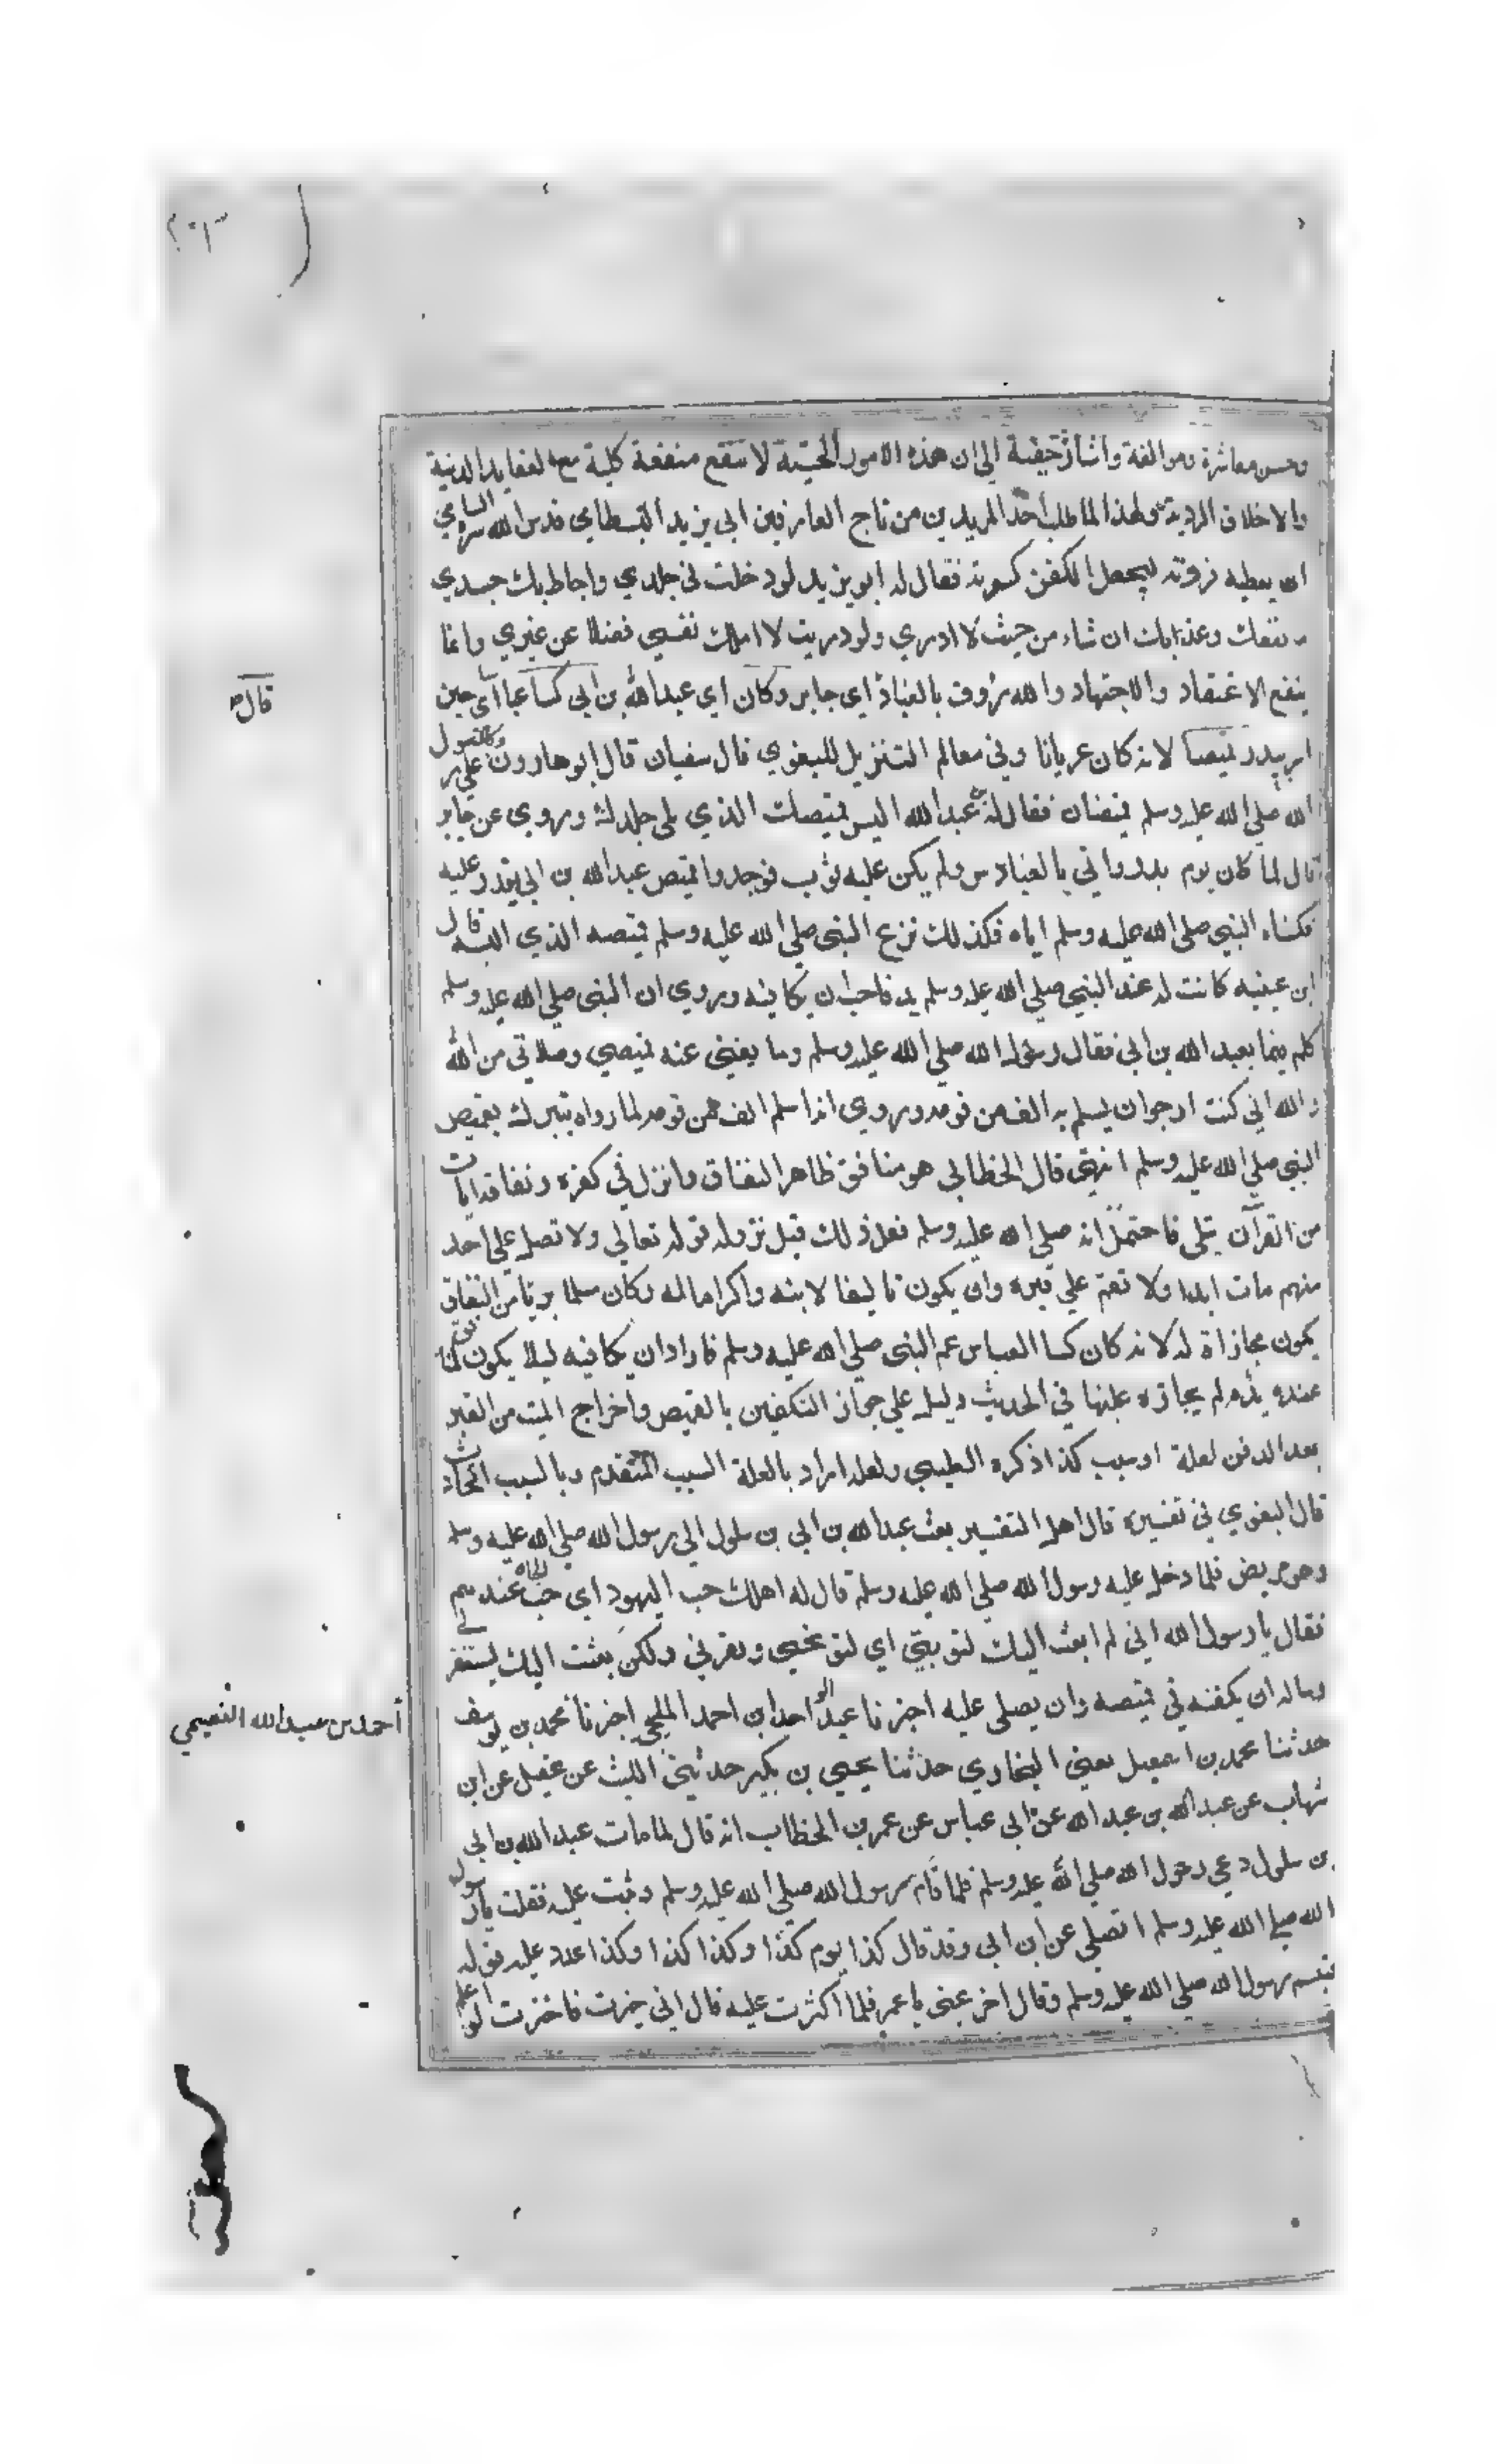 وحسن معاشرة وموالفة واشارة خفية الي ان هذه الامور الحسية لا تنفع منفعة كلية مع العقايد الدنية
والاخلاق الردية ولهذا لما طلب احد المريدين من تاج العارفين ابي يزيد البسطامي قدس الله سره السامي
ان يعطيه فروته ليجعل الكفن كسوته فقال له ابو يزيد لو دخلت في جلدي واحاط بك جسدي
ما نفعك وعذابك ان شاء من حيث لا ادري ولو دريت لا املك نفسي فضلا عن غيري وانما
ينفع الاعتقاد والاجتهاد والله رؤوف بالعباد اي جابر وكان اي عبدالله بن ابي كسا عباسا اي حين
قال
اسر ببدر قميصا لانه كان عريانا وفي معالم التنزيل للبغوي قال سفيان قال ابو هارون وكان علي رسول
الله صلي الله عليه وسلم قميصان فقال له عبدالله البس قميصك الذي يلى جلدك وروي عن جابر
قال لما كان يوم بدر واتي بالعباس ولم يكن عليه ثوب فوجدوا قميص عبدالله بن ابي يقدر عليه
فكساه النبي صلى الله عليه وسلم اياه فكذلك نزع النبي صلي الله عليه وسلم قميصه الذي البسه قال
ابن عيينه كانت له عند النبي صلي الله عليه وسلم يد فاحب ان يكافيه وروي ان النبي صلي الله عليه وسلم
كلم فيما بعبد الله بن ابي فقال رسول الله صلي الله عليه وسلم وما يغني عنه قميصي وصلاتي من الله
والله اني كنت ارجو ان يسلم به الف من قومه وروي انه اسلم الف من قومه لما رواه يتبرك بقميص
النبي صلي الله عليه وسلم انتهى قال الخطابي هو منافق ظاهر النفاق وانزل في كفره ونفاقه ايات
من القرآن يتلى فاحتمل انه صلي الله عليه وسلم فعل ذلك قبل نزوله قوله تعالي ولا تصل علي احد
منهم مات ابدا ولا تقم علي قبره وان يكون تاليفا لابنه واكراما له وكان مسلما بريا من النفاق
يكون مجازاة له لانه كان كسا العباس عم النبي صلي الله عليه وسلم فاراد ان يكافيه ليلا يكون
عنده يد لم يجازه عليها في الحديث دليل علي جواز التكفين بالقميص واخراج الميت من القبر
بعد الدفن لعلة او سبب كذا ذكره الطيبي ولعله اراد بالعلة السبب المتقدم وبالسبب الحادث
قال البغوي في تفسيره قال اهل التفسير بعث عبدالله بن ابي بن سلول الي رسول الله صلي الله عليه وسلم
وهو مريض فلما دخل عليه رسول الله صلي الله عليه وسلم قال له اهلك حب اليهود اي حب الجاه عندهم
فقال يا رسول الله اني لم ابعث اليك لتوبيتي اي لتوبخني وتعرني ولكن بعثت اليك لتستغفر لي
وساله ان يكفنه في قميصه وان يصلى عليه اخبرنا عبد الواحد ابن احمد المليحي اخبرنا محمد بن يوسف
أحمد بن عبيدالله النعيمي
حدثنا محمد بن اسمعيل يعني البخاري حدثنا يحيي بن بكير حدثني الليث عن عقيل عن ابن
شهاب عن عبدالله بن عبد الله عن ابي عباس عن عمر بن الخطاب انه قال لما مات عبد الله بن ابي
بن سلول دعي رسول الله صلي الله عليه وسلم فلما قام رسول الله صلي الله عليه وسلم وثبت عليه فقلت يا رسول
الله صلي الله عليه وسلم اتصلي عن ابن ابي وقد قال كذا يوم كذا وكذا كذا وكذا اعدد عليه قوله
فتبسم رسول الله صلي الله عليه وسلم وقال اخر عني يا عمر فلما اكثرت عليه قال اني خيرت فاخترت لو اعلم